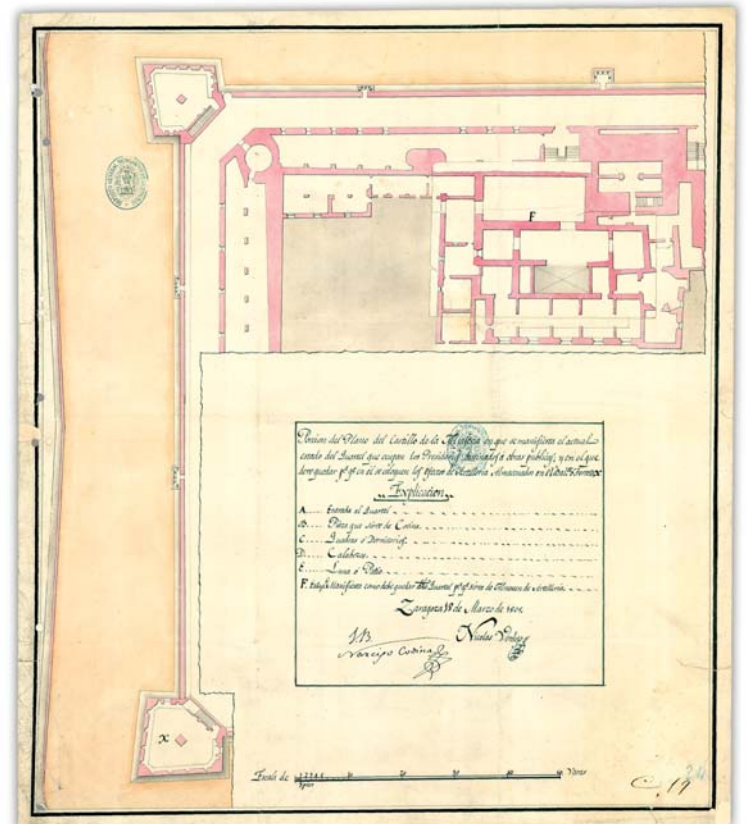 F
Porcion del Plano del Castillo de la Aljaferia en que se manifiesta el actual
estado del Quartel que ocupan los Presidarios destinados á obras publicas, y en el que
debe quedar pª qº en el se coloquen los efectos de Artilleria Almacenados en el
Explicacion
A..... Entrada al Quartel
B..... Pieza que sirve de Cocina.
C..... Quadras ó Dormitorios.
D..... Calabozos.
E..... Luna ó Patio
F. Manifiesta como debe quedar Quartel pª qº sirva de Almacen de Artilleria
Zaragoza 18 de Marzo de
V.B.
Narciso Codina
Nicolas
X
Escala de
Varas
C. 19
24